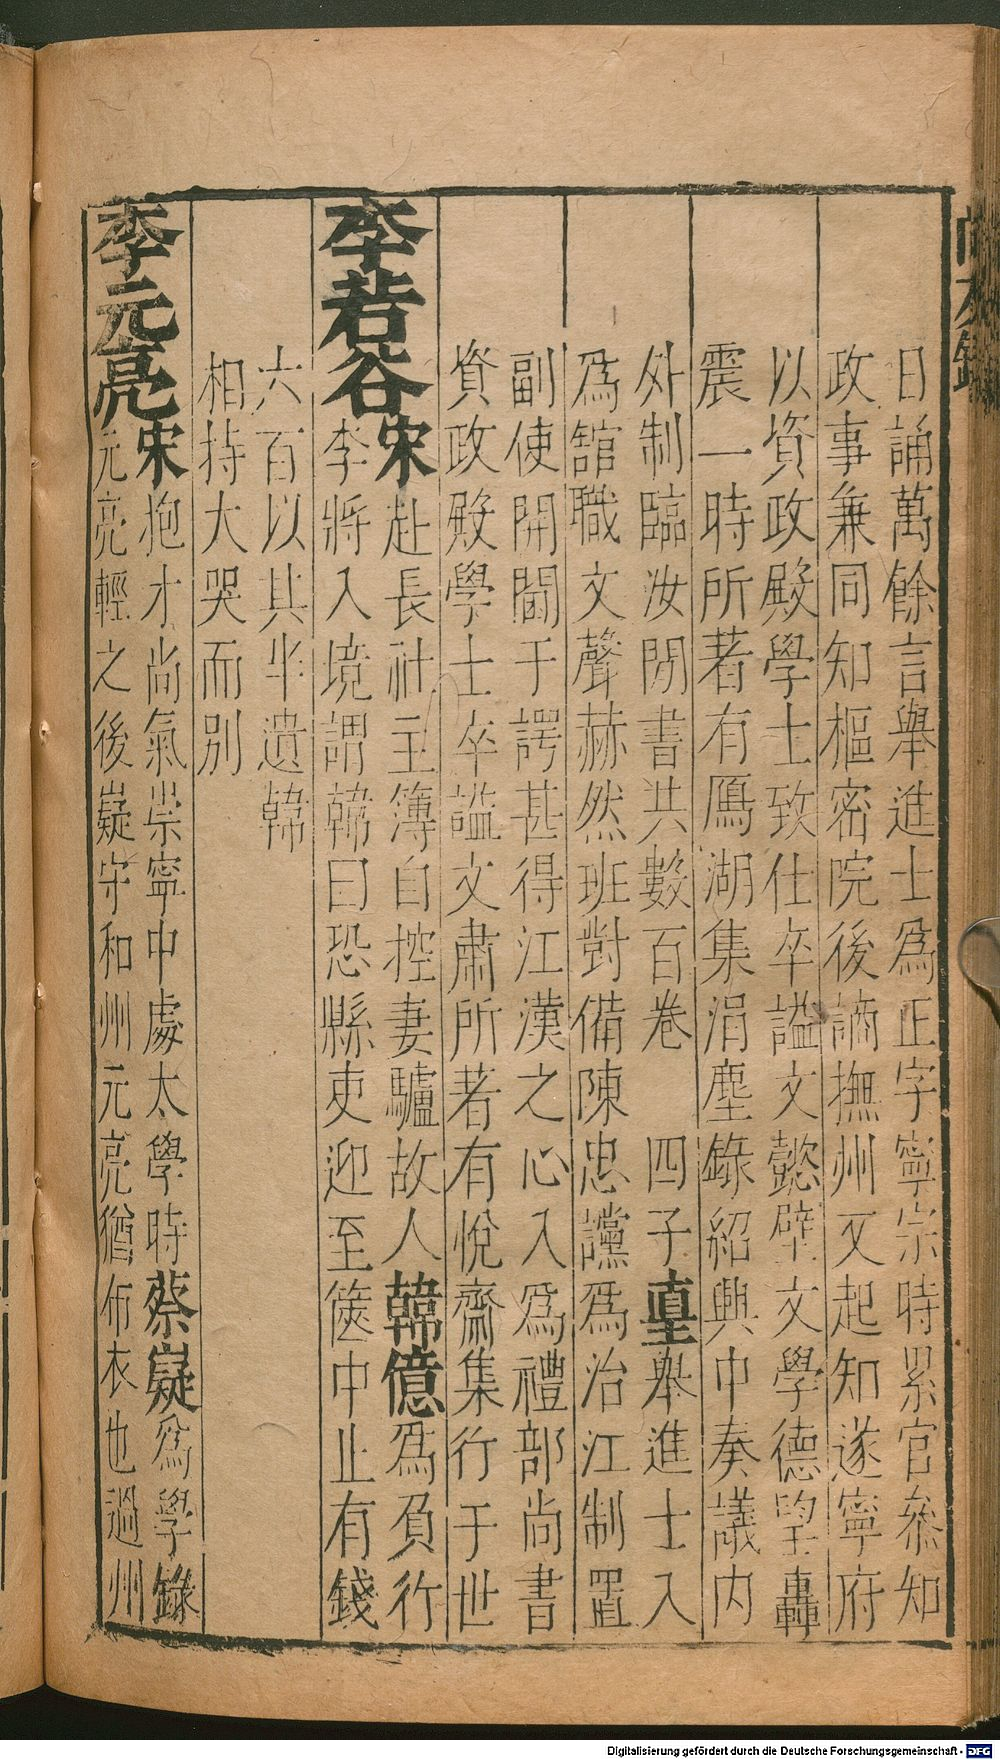 日誦萬餘言舉進士爲正字寧宗時累官叅知
政事兼同知樞密院後謫撫州又起知遂寧府
以資政殿學士致仕卒謚文懿壁文學德望轟
震一時所著有鴈湖集涓塵錄紹興中奏議內
外制臨汝閒書共數百卷　四子𡌴舉進士入
爲舘職文聲赫然班對備陳忠讜爲治江制置
副使開閫于諤甚得江漢之心入爲禮部尚書
資政殿學士卒謚文肅所著有悅齋集行于世
李若谷宋赴長社主簿自控妻驢故人韓億爲負行
李將入境謂韓曰恐縣吏迎至篋中止有錢
六百以其半遺韓
相持大哭而別
李元亮宋抱才尚氣崇寧中處太學時蔡嶷爲學錄
元亮輕之後嶷守和州元亮猶布衣也過州
Digitalisierung gefördert durch die Deutsche Forschungsgemeinschaft - DFG